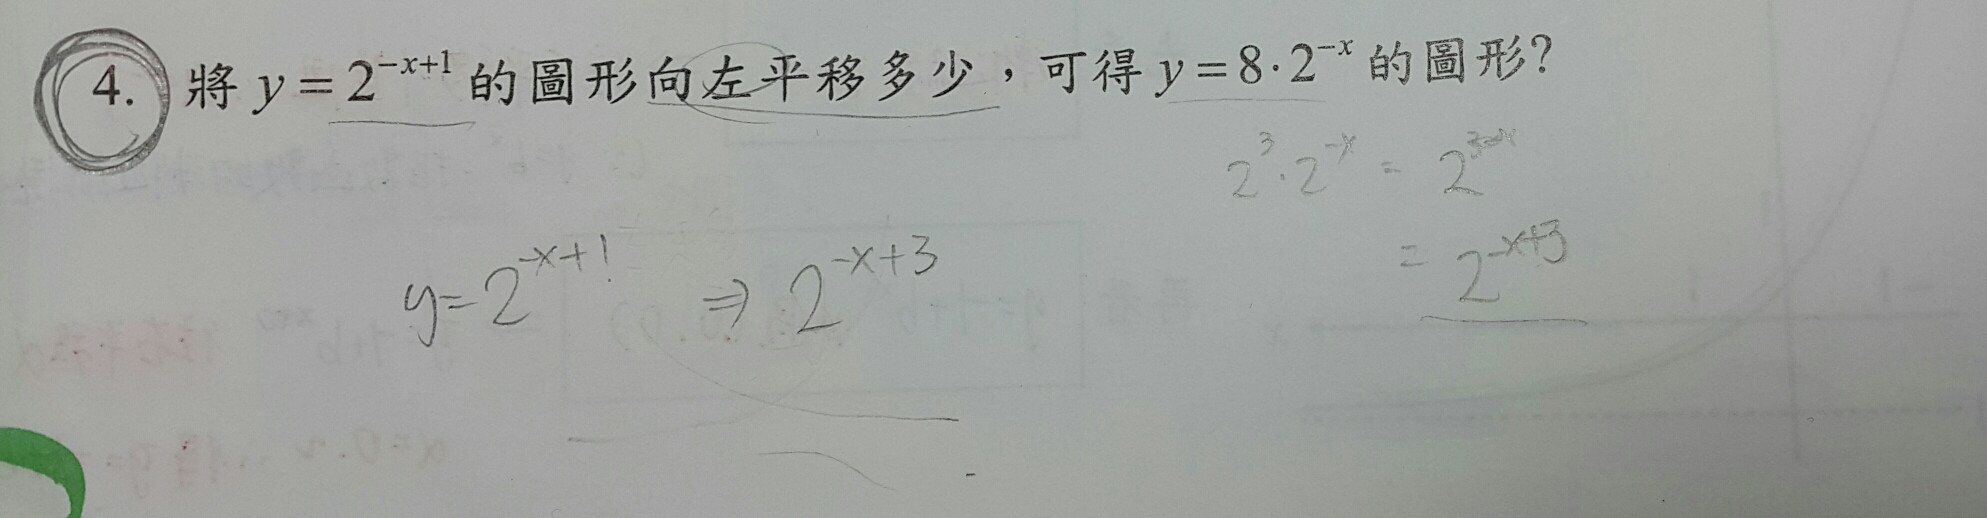 4. 將 y = 2^{-x+1} 的圖形向左平移多少，可得 y = 8·2^{-x} 的圖形？
2^3·2^{-x} = 2^{3-x}
= 2^{-x+3}
y = 2^{-x+1} ⇒ 2^{-x+3}